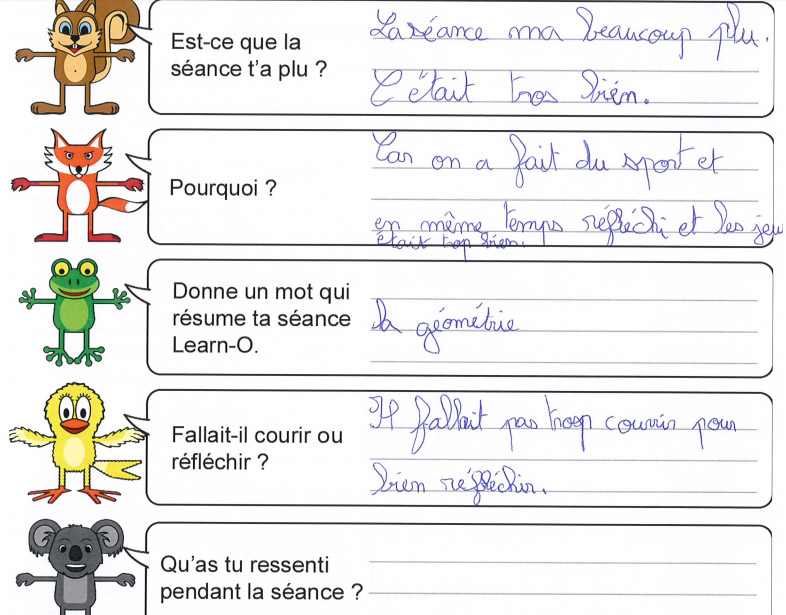 Est-ce que la
séance t'a plu ?
La séance ma beaucoup plu.
C'était tros bien.
Pourquoi ?
Car on a fait du sport et
en même temps réfléchi et les jeu
était trop bien.
Donne un mot qui
résume ta séance
Learn-O.
la géométrie
Fallait-il courir ou
réfléchir ?
Il fallait pas troop courrir pour
bien réfléchir.
Qu'as tu ressenti
pendant la séance ?